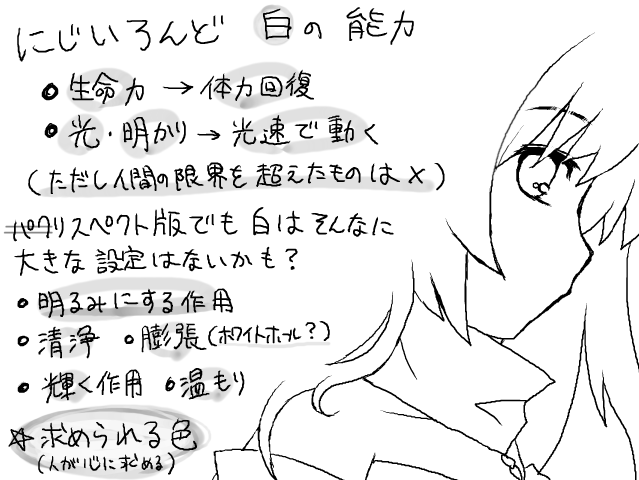 にじいろんど 白の能力
• 生命力 → 体力回復
• 光・明かり → 光速で動く
(ただし人間の限界を超えたものは×)
パクリスペクト版でも白はそんなに
大きな設定はないかも?
• 明るみにする作用
• 清浄 • 膨張(ホワイトホール?)
• 輝く作用 • 温もり
☆ 求められる色
(人が心に求める)